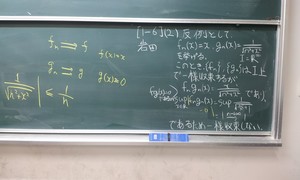 fₙ ⇉ f  f(x)=x
gₙ ⇉ g  g(x)=0
1/√(n²+x²) ≤ 1/n
[1-6](2) 反例として
岩田
fₙ(x)=x, gₙ(x)=1/√(n²+x²)
I=ℝ
を挙げる。
このとき, {fₙ}, {gₙ}は I 上
で一様収束するが
fₙgₙ(x)= x/√(n²+x²) であり,
であるため一様収束しない。